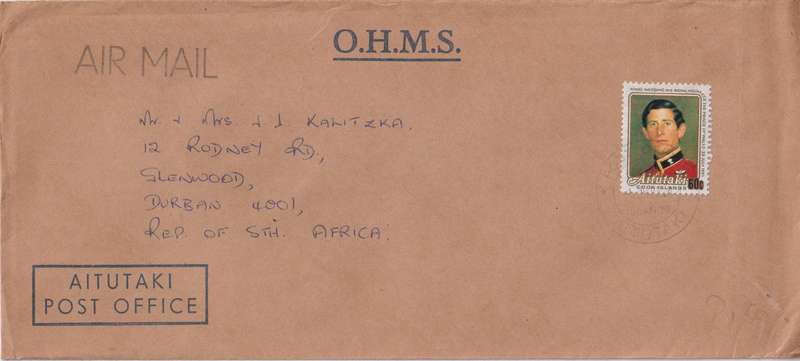 O.H.M.S.
AIR MAIL
Mr. & Mrs. J. J. KALITZKA.
12 RODNEY RD,
GLENWOOD,
DURBAN 4001,
REP. OF STH. AFRICA.
Aitutaki 60c
COOK ISLANDS
AITUTAKI
POST OFFICE